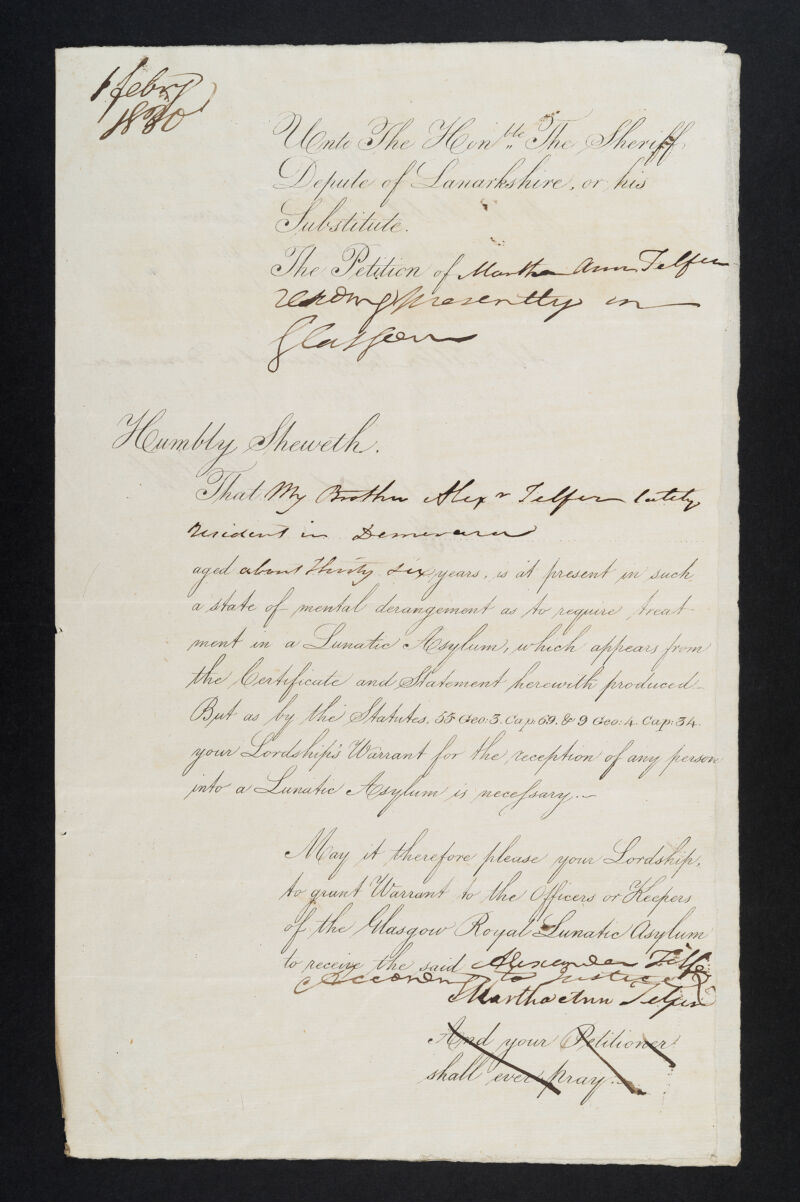 1 febry
1830
Unto The Honble. The Sheriff
Depute of Lanarkshire, or his
Substitute.
The Petition of Martha Ann Telfer
residing presently in
Glasgow
Humbly Sheweth.
That My Brother Alexr Telfer lately
resident in Demerara
aged about thirty six years, is at present in such
a state of mental derangement as to require treat-
ment in a Lunatic Asylum, which appears from
the Certificate and Statement herewith produced_
But as by the Statutes, 55 Geo: 3. Cap: 69. & 9 Geo: 4. Cap: 34.
your Lordship's Warrant for the reception of any person
into a Lunatic Asylum is necessary._
May it therefore please your Lordship,
to grant Warrant to the Officers or Keepers
of the Glasgow Royal Lunatic Asylum
to receive the said Alexander Telfer
According to Justice
Martha Ann Telfer
And your Petitioner
shall ever pray._